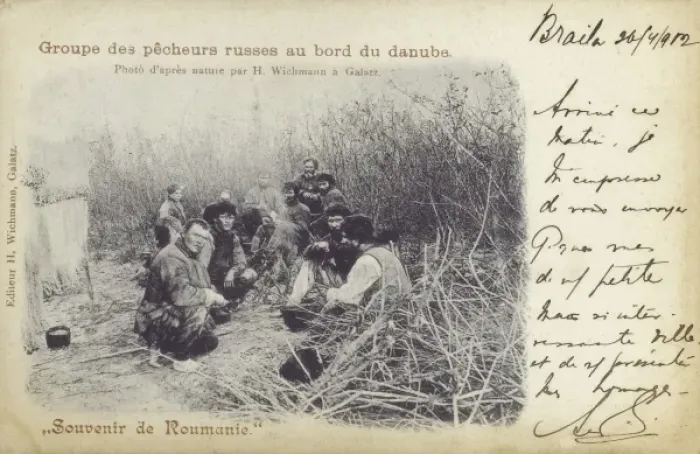 Groupe des pêcheurs russes au bord du danube.
Photò d'après nature par H. Wichmann à Galatz.
Editeur H. Wichmann, Galatz.
„Souvenir de Roumanie."
Braila 26/4/902
Arrivé ce
matin, je
m'empresse
de vous envoyer
de
petite
mais si inter-
ressante ville
et de présenter